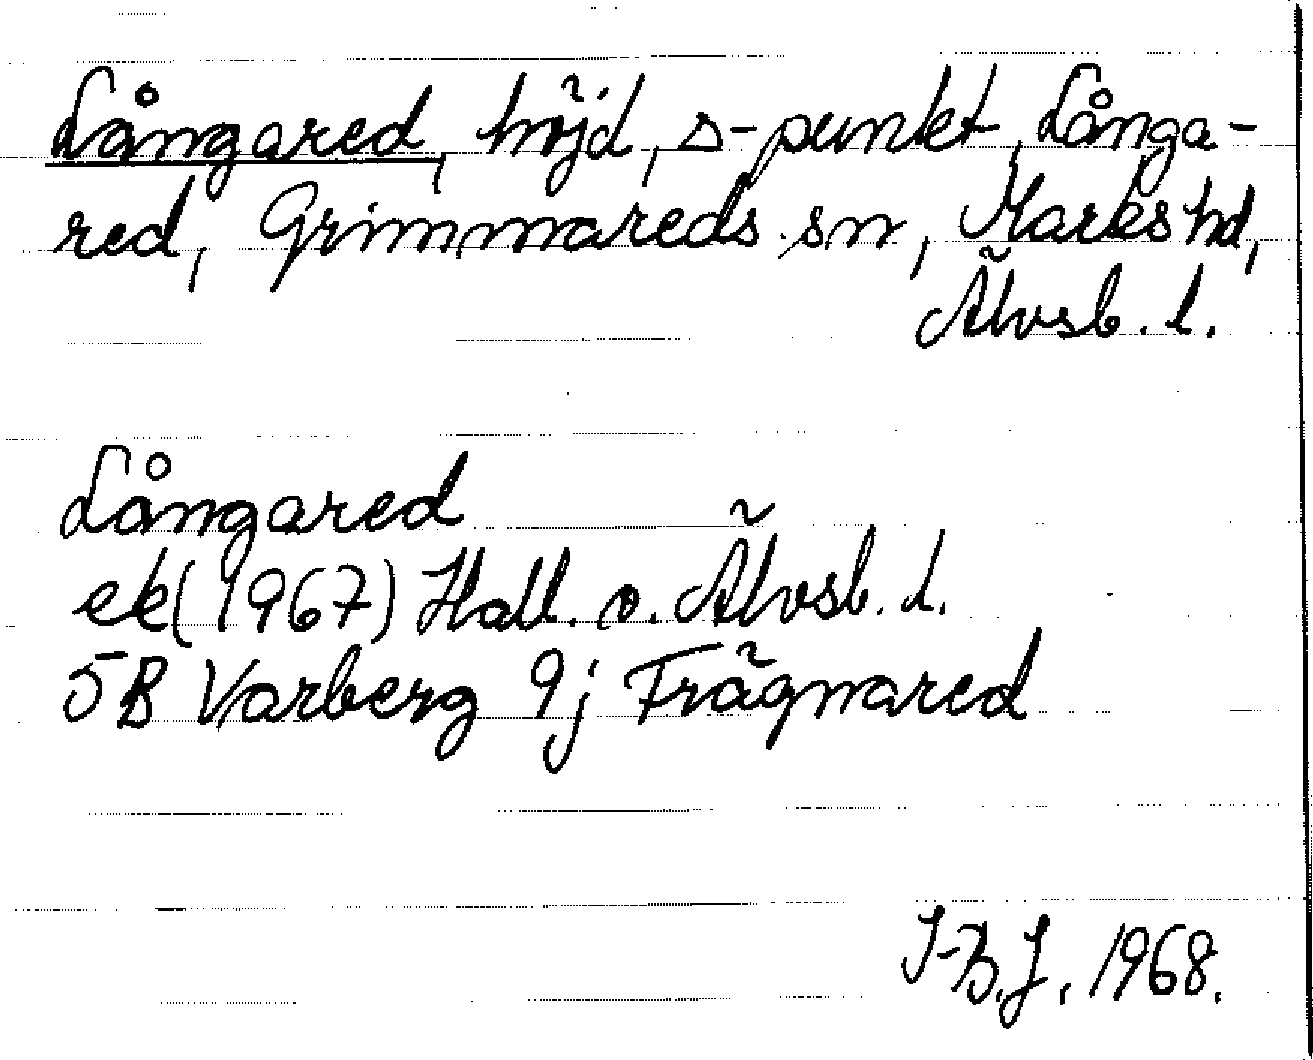 Långared, höjd, △-punkt, Långa-
red, Grimmareds sn, Marks hd,
Älvsb. l.
Långared
ek (1967) Hall. o. Älvsb. l.
5B Varberg 9j Frägnared
I-B.J. 1968.